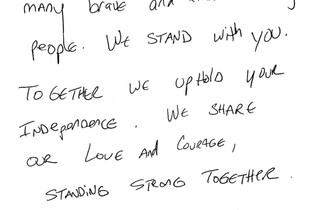 many brave and
people. WE STAND with you.
TOGETHER WE upHold YOUR
INdependence. WE SHARE
OUR LOVE AND COURAGE,
STANDING STRONG TOGETHER.